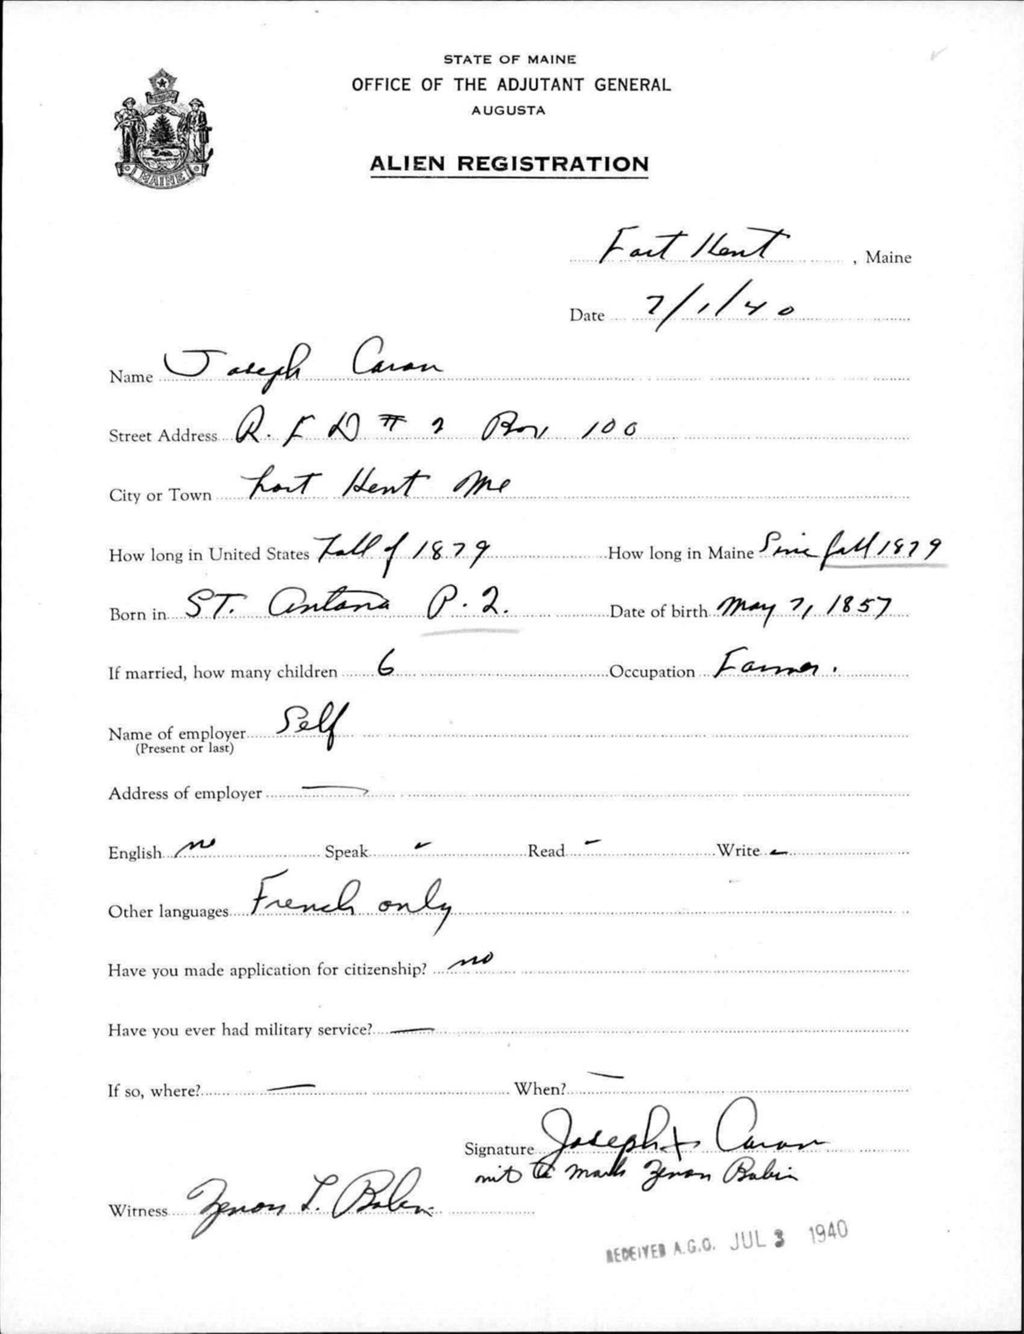 STATE OF MAINE
OFFICE OF THE ADJUTANT GENERAL
AUGUSTA
ALIEN REGISTRATION
MAINE
Fort Kent, Maine
Date 7/1/40
Name Joseph Caron
Street Address R.F.D # 2 Box 100
City or Town Fort Kent Me
How long in United States Fall of 1879 How long in Maine Since fall 1879
Born in ST. Antana P.Q. Date of birth May 7, 1857
If married, how many children 6 Occupation Farmer.
Name of employer Self
(Present or last)
Address of employer —
English no Speak - Read - Write -
Other languages French only
Have you made application for citizenship? no
Have you ever had military service? —
If so, where? — When? —
Signature Joseph X Caron
wit to mark Zenon Babin
Witness Zenon L. Babin
RECEIVED A.G.O. JUL 3 1940